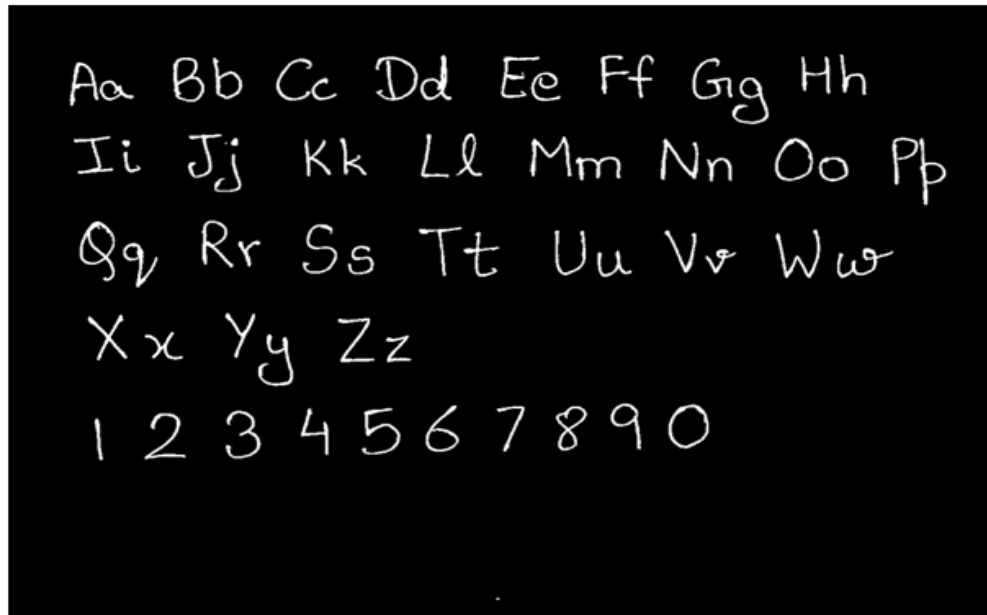 Aa Bb Cc Dd Ee Ff Gg Hh
Ii Jj Kk Ll Mm Nn Oo Pp
Qq Rr Ss Tt Uu Vv Ww
Xx Yy Zz
1 2 3 4 5 6 7 8 9 0